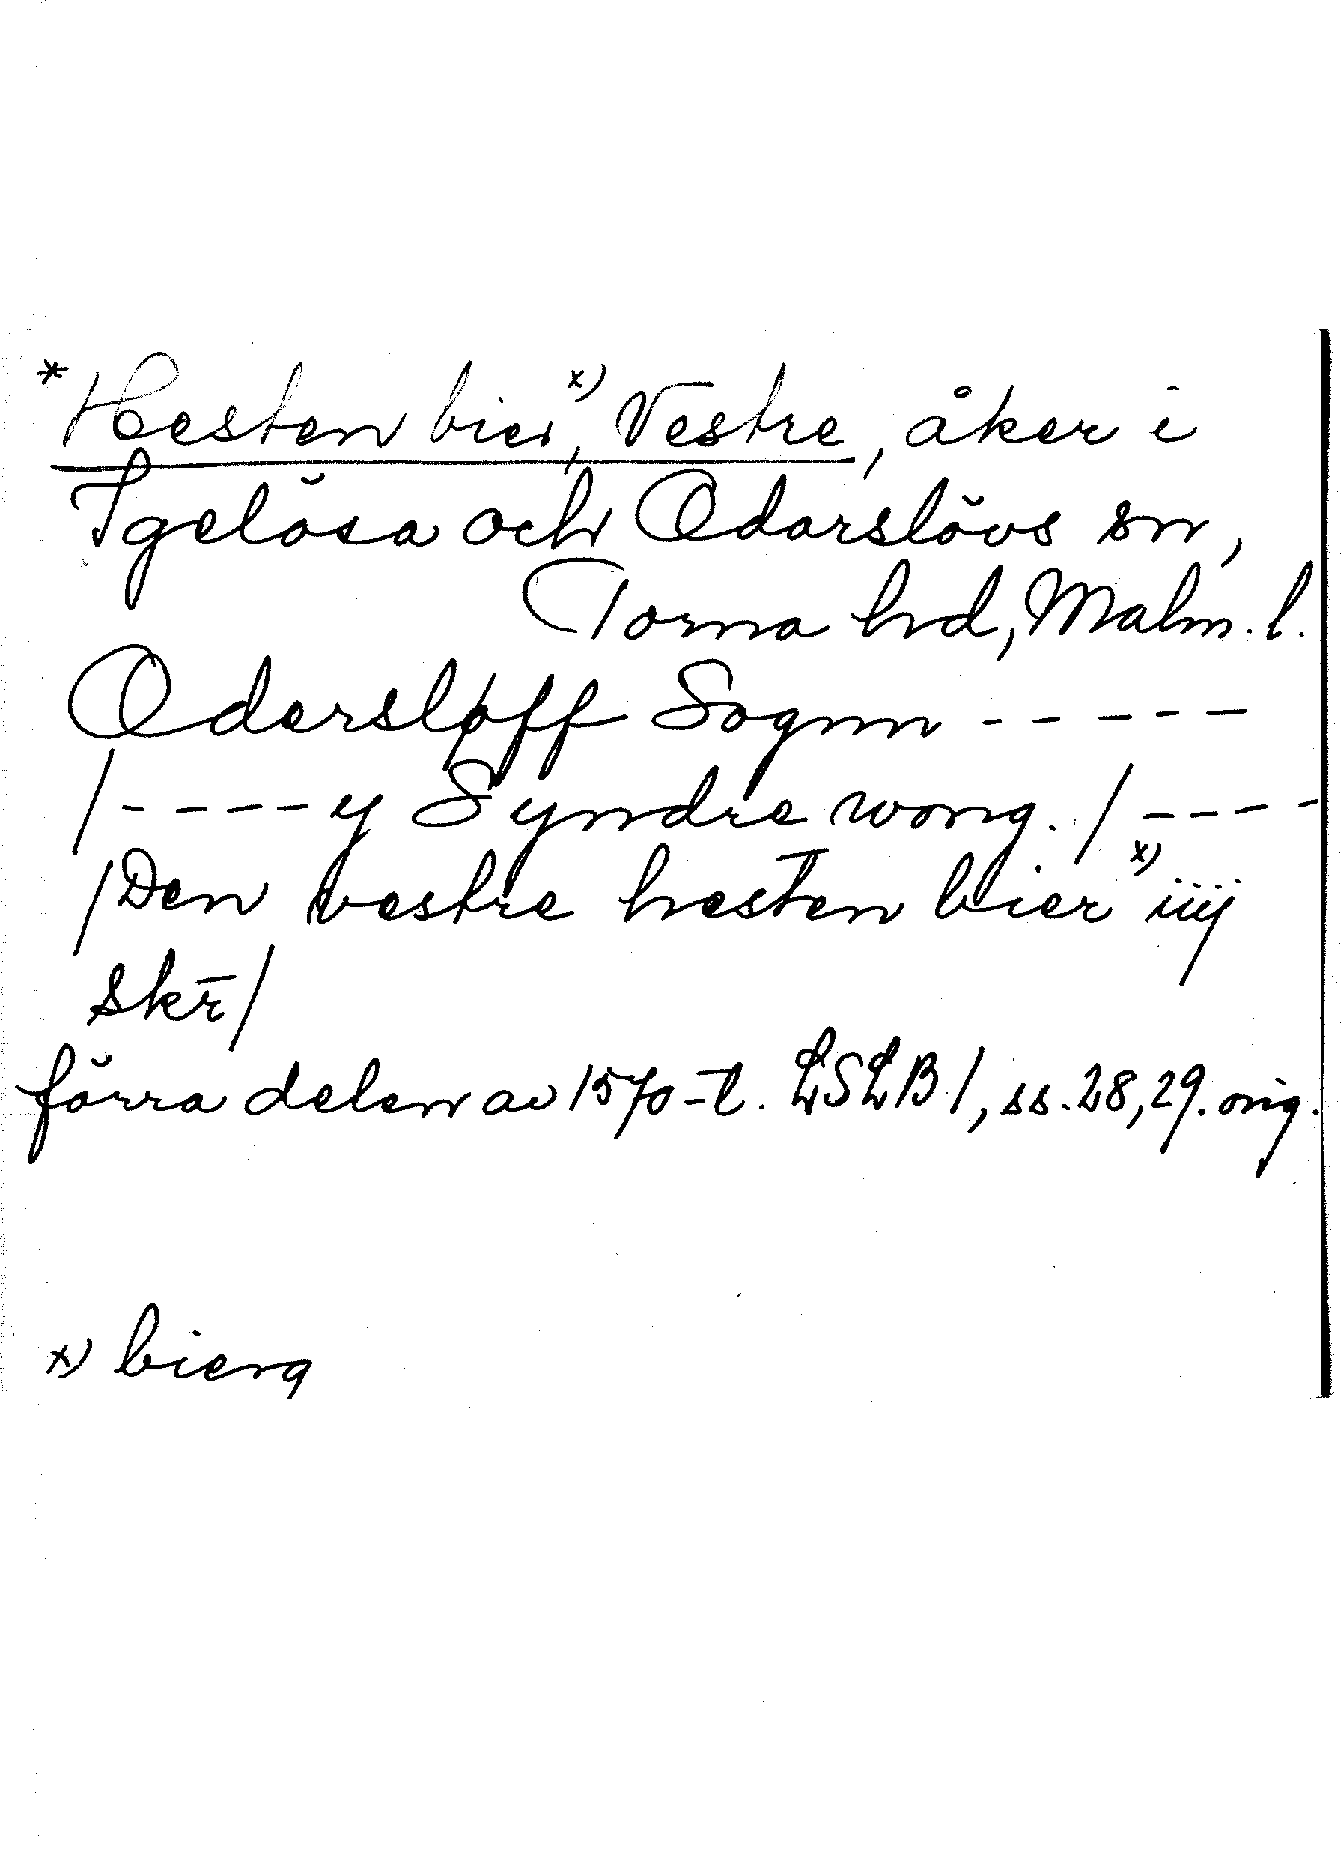 *Hesten bier x), Vestre, åker i
Igelösa och Odarslövs sn,
Torna hd, Malm. l.
Odersløff Sognn - - - - -
/- - - - y Syndre wong. / - - - -
/Den vestre hesten bier x) iiij
skr̄/
förra delen av 1570-t. LSLB 1, ss. 28, 29. orig.
x) bierg